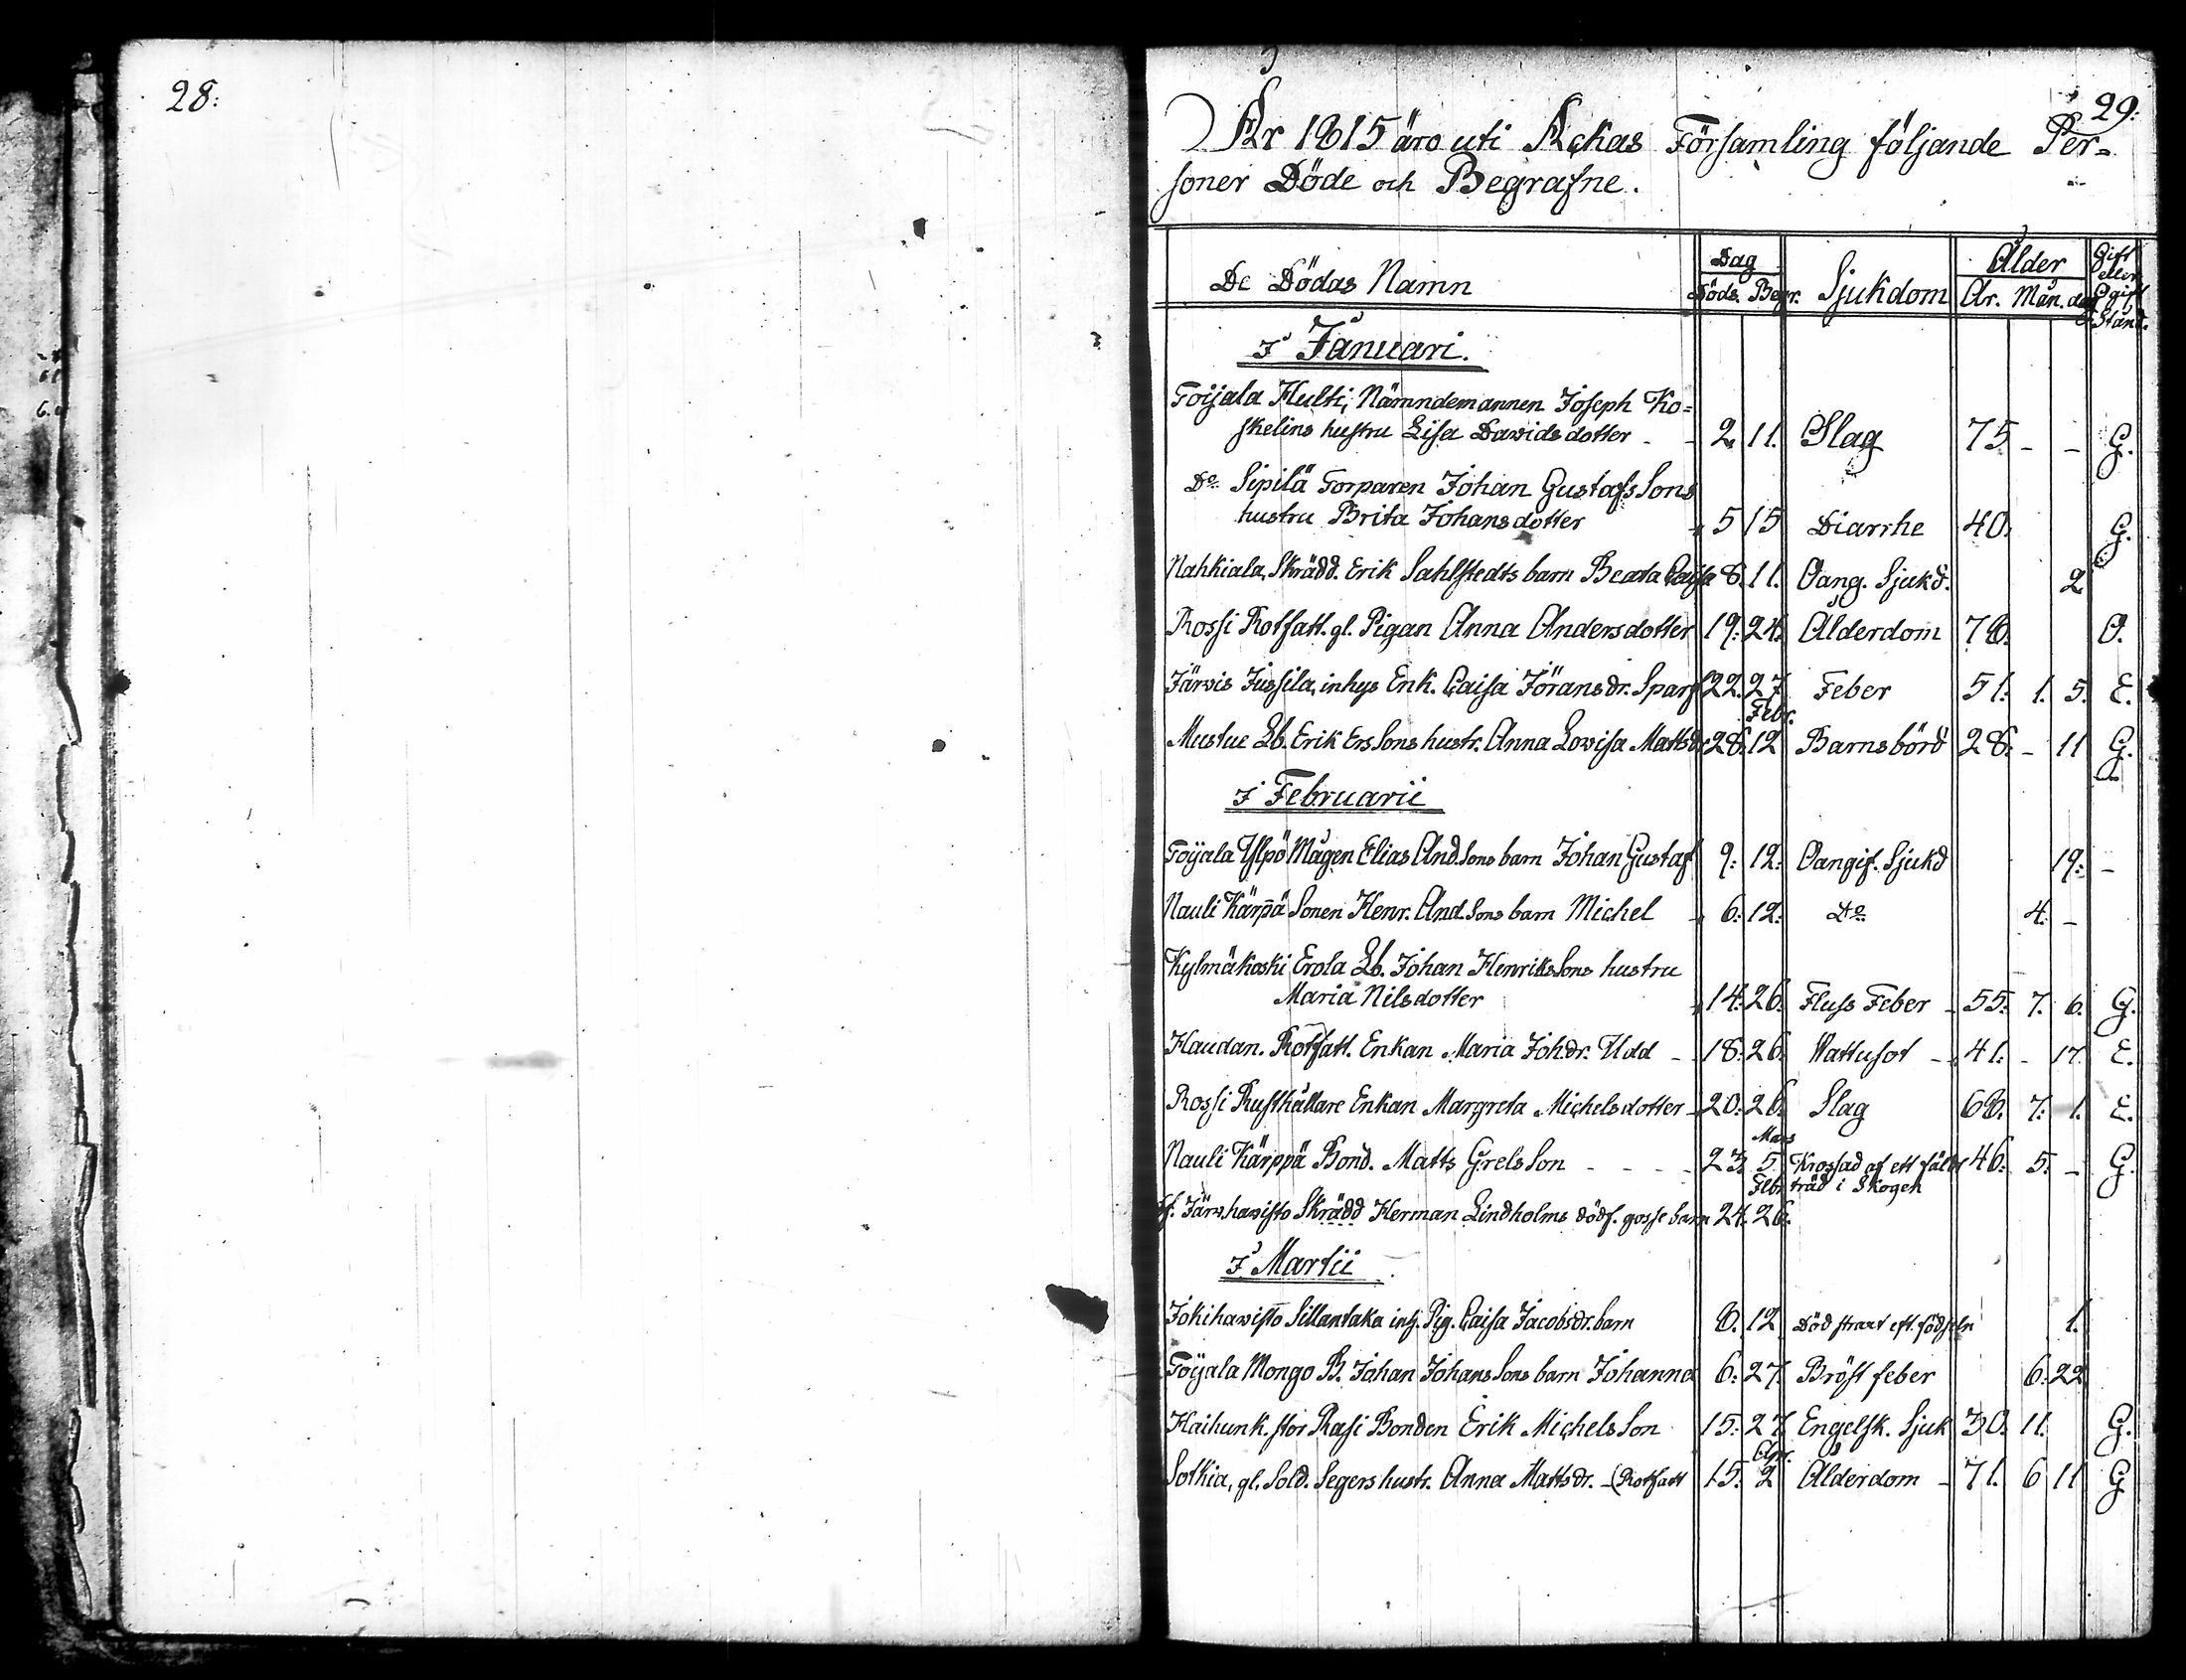 28:
29:
År 1815 äro uti Ackas Församling följande Per-
soner Döde och Begrafne.
De Dödas Namn | Dag | Sjukdom | Ålder | Gift eller Ogift Stånd.
Döds. Begr. | År. Mån. dag
I Januari.
Toijala Hulti, Nämndemannen Joseph Ko-
skelins hustru Lisa Davidsdotter - - 2. 11. Slag 75. - - G.
Do Sipilä Torparen Johan Gustafs Sons
hustru Brita Johansdotter 5 15 Diarrhe 40. G.
Nahkiala, Skrädd. Erik Sahlstedts barn Beata Caisa 8. 11. Oang. Sjukd. 2
Rossi Rotfatt. gl. Pigan Anna Andersdotter 19. 24. Ålderdom 78. O.
Järvis Jussila, inhys Enk. Caisa Jöransdr. Sparf 22. 27. Feber 51. 1. 5. E.
Febr.
Mustue Lb. Erik Ers Sons hustr. Anna Lovisa Mattsdr 28. 12 Barnsbörd 28. - 11 G.
I Februarii
Toijala Ylpö Mågen Elias And.Sons barn Johan Gustaf 9: 12: Oangif. Sjukd 19: -
Nauli Kärpä Sonen Henr. And.Sons barn Michel 6: 12: Do 4. -
Kylmäkoski Erola Lb. Johan Henriks Sons hustru
Maria Nilsdotter 14: 26. Fluss Feber - 55. 7. 6. G.
Haudan. Rotfatt. Enkan Maria Joh.dr. Udd - 18: 26. Wattusot - 41. - 17. E.
Rossi Rusthållare Enkan Margreta Michelsdotter - 20: 26. Slag 68. 7. 1. E.
Mars
Nauli Kärppä Bond. Matts Grels Son - - - - 23. 5. Krossad af ett fäldt 46. 5. - G.
Febr. träd i Skogen
Järv.havisto Skrädd Herman Lindholms dödf. gosse barn 24. 26.
I Martii
Jokihavisto Sillantaka inh. Pig. Caisa Jacobsdr. barn 8. 12 Död straxt eft. födseln 1.
Toijala Mongo B. Johan Johans Sons barn Johanna 6: 27. Bröst feber 6. 22
Haihunk. stor Rasi Bonden Erik Michels Son 15: 27. Engelsk. Sjuk 30. 11. G.
Apr.
Sotkia, gl. Sold. Segers hustr. Anna Mattsdr. - (Rotfatt 15. 2 Ålderdom - 71. 6 11 G